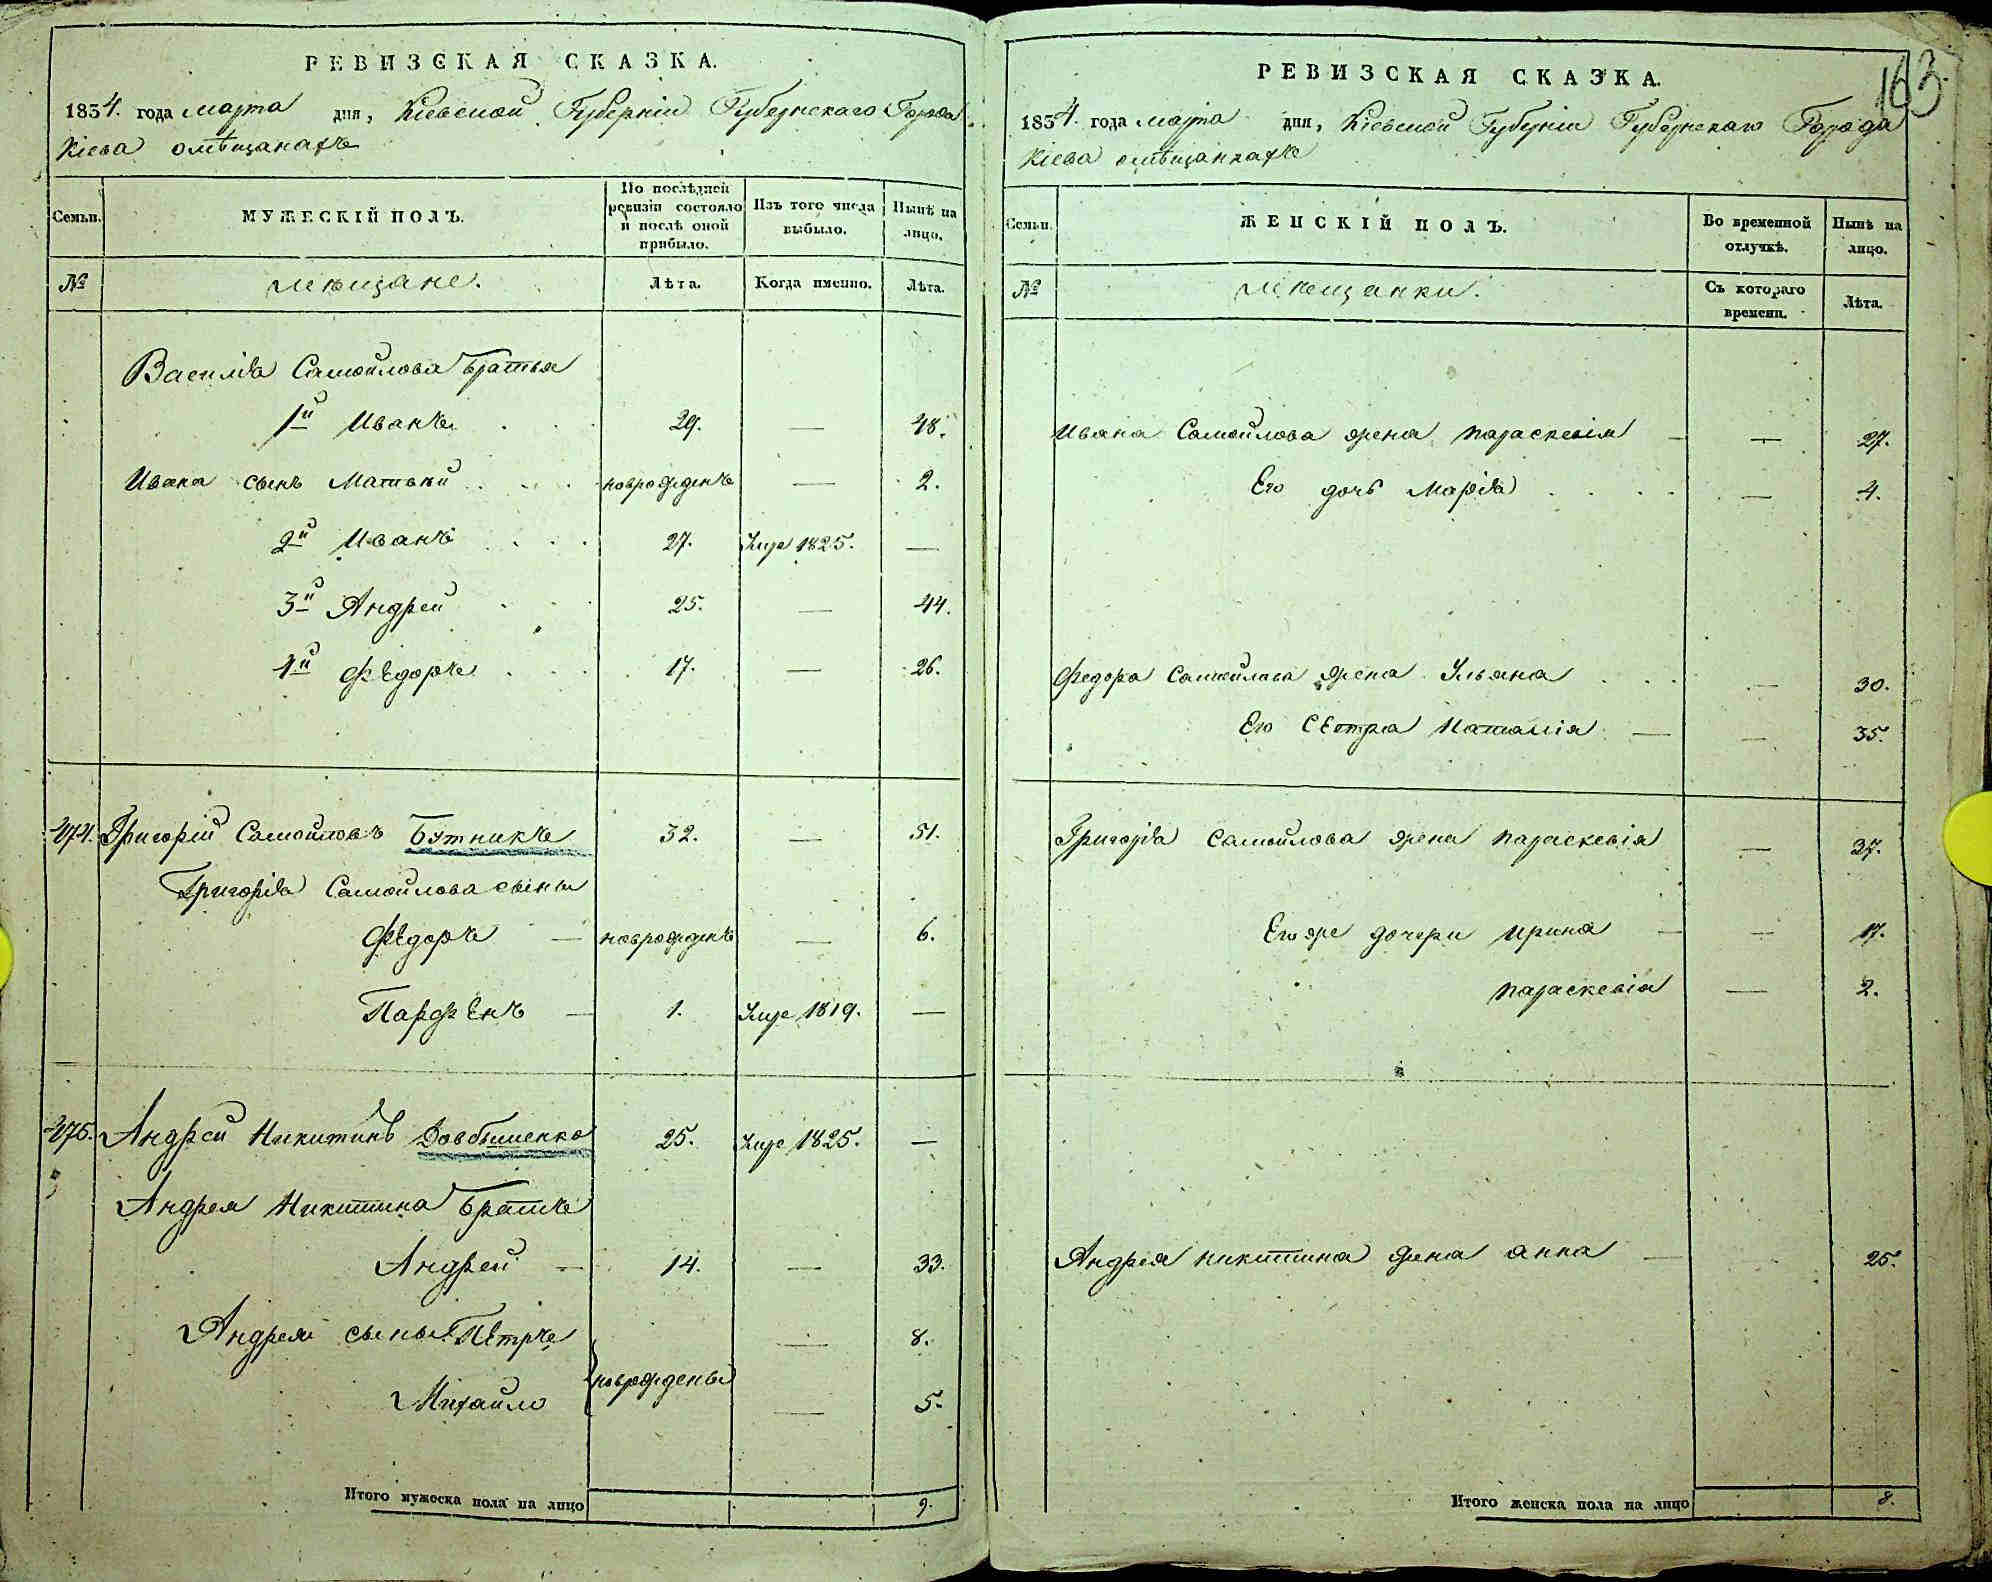 РЕВИЗСКАЯ СКАЗКА.
1834. года марта дня, Кіевской Губерніи Губернскаго Города
Кіева омѣщанахъ
Семьи. МУЖЕСКІЙ ПОЛЪ. По послѣдней ревизіи состояло и послѣ оной прибыло. Изъ того числа выбыло. Нынѣ на лицо.
№ мѣщане. Лѣта. Когда именно. Лѣта.
Василія Самойлова братья
1й Иванъ 29. — 48.
Ивана сынъ Матвѣй новрожденъ — 2.
2й Иванъ 27. Умре 1825. —
3й Андрей 25. — 44.
4й Федоръ 17. — 26.
474. Григорій Самойловъ Бутникъ 32. — 51.
Григорія Самойлова сыны
Федоръ — новрожденъ — 6.
Парфенъ — 1. Умре 1819. —
475. Андрей Никитинъ Довбышенко 25. Умре 1825. —
Андрея Никитина братъ
Андрей — 14. — 33.
Андрея сыны Петръ — 8.
новрождены
Михайло — 5.
Итого мужеска пола на лицо 9.
163.
РЕВИЗСКАЯ СКАЗКА.
1834. года марта дня, Кіевской Губерніи Губернскаго Города
Кіева омѣщанкахъ
Семьи. ЖЕНСКІЙ ПОЛЪ. Во временной отлучкѣ. Нынѣ на лицо.
№ мѣщанки. Съ котораго времени. Лѣта.
Ивана Самойлова жена Параскевія — — 27.
Его дочь Марія — 4.
Федора Самойлова жена Ульяна — 30.
Его сестра Наталія — — 35.
Григорія Самойлова жена Параскевія — 37.
Его же дочери Ирина — — 17.
Параскевія — 2.
Андрея Никитина жена Анна — 25.
Итого женска пола на лицо 8.